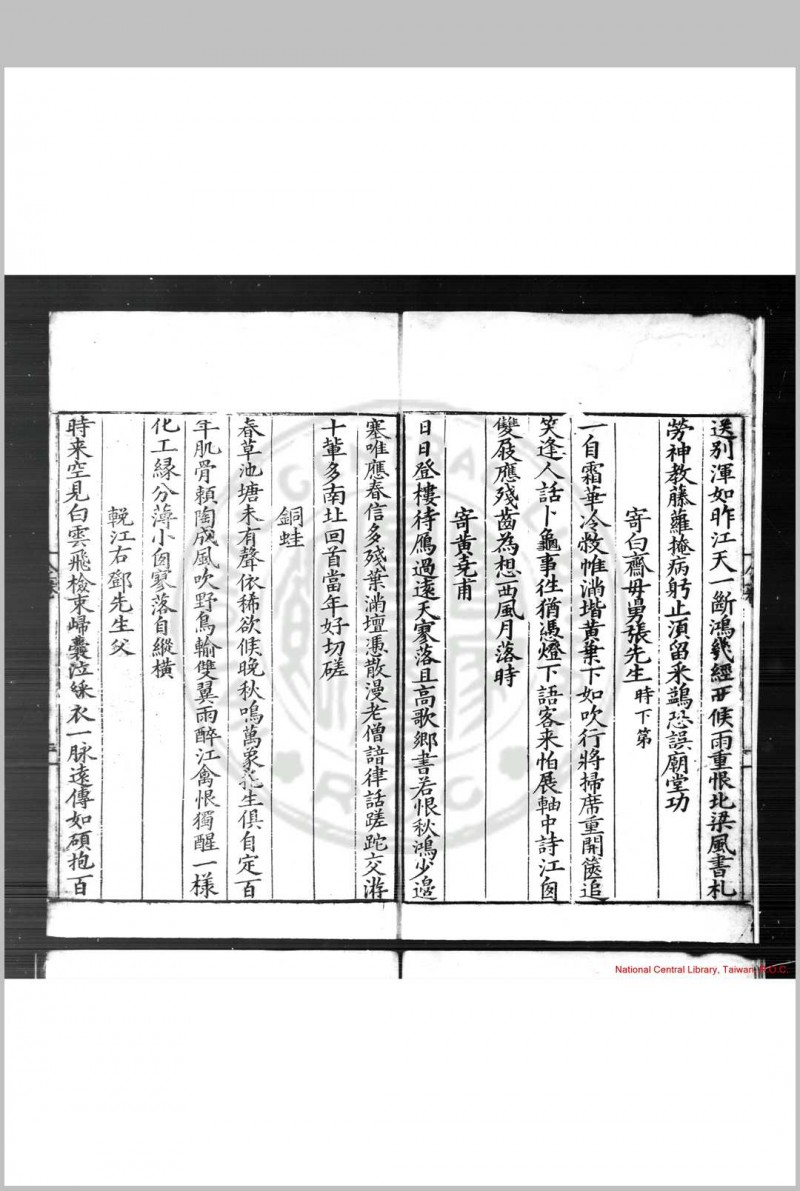 送別渾如昨江天一斷鴻幾經西候雨重恨北梁風書札
勞神教藤蘿掩病躬止須留釆鷁恐誤廟堂功
寄白齋毋舅張先生時下第
一自霜華冷敉帷滿堦黃葉下如吹行將掃席重開篋追
笑逢人話卜龜事徃猶憑燈下語客来怕展軸中詩江囱
雙屐應殘齒為想西風月落時
寄黃堯甫
日日登樓待鴈過遠天寥落且高歌鄉書若恨秋鴻少邊
塞唯應春信多殘葉滿壇憑散漫老僧諳律話蹉跎交游
十輩多南北回首當年好切磋
銅蛙
春草池塘未有聲依稀欲候晚秋鳴萬衆生俱自定百
年肌骨頼陶成風吹野鳥輸雙翼雨醉江禽恨獨醒一樣
化工縁分薄小囱寥落自縱橫
輓江右鄧先生父
時来空見白雲飛檢束歸囊泣綵衣一脉遠傳如碩抱百
National Central Library, Taiwan, R.O.C.